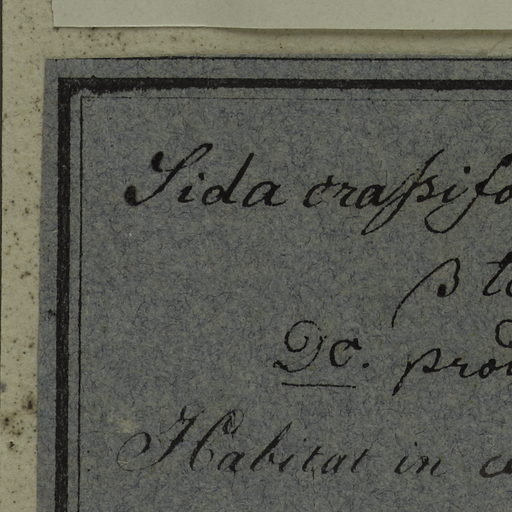 Sida craſsifo
β to
DC. pro
Habitat in c